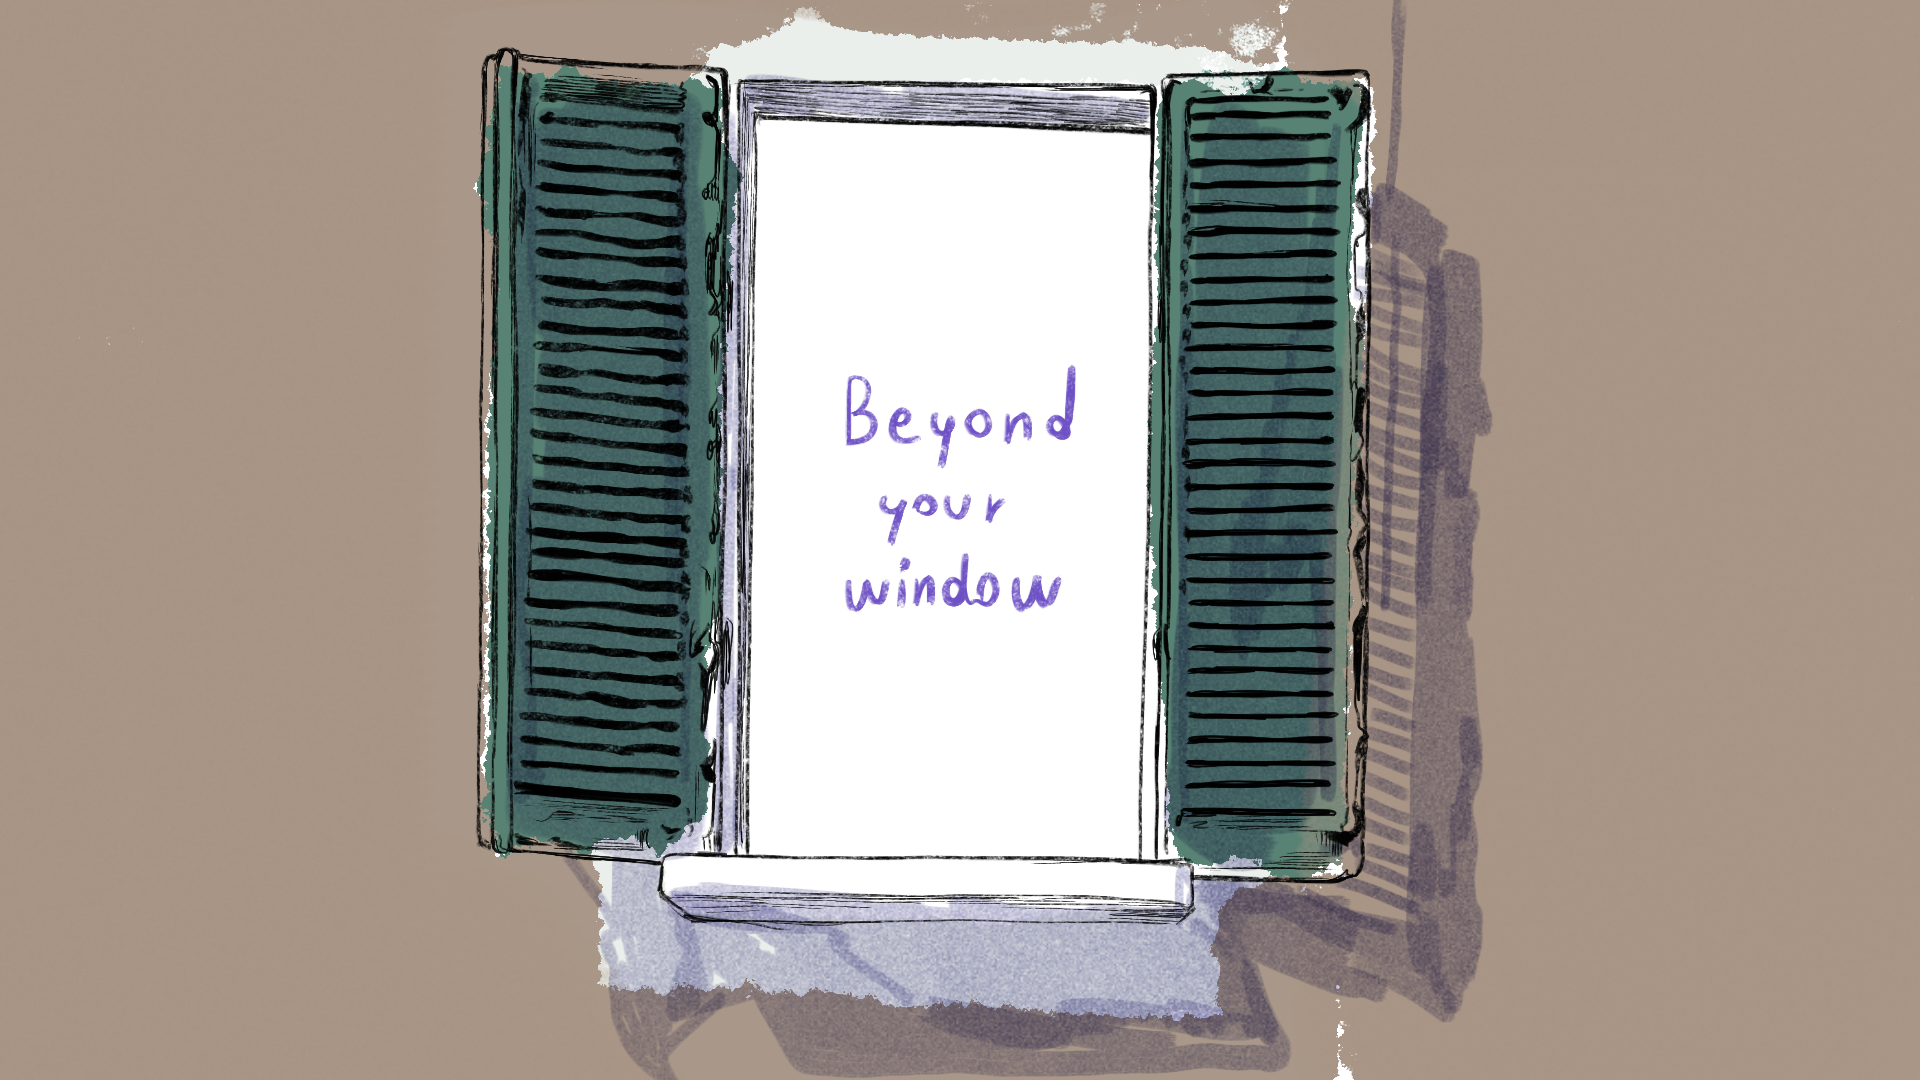 Beyond
your
window